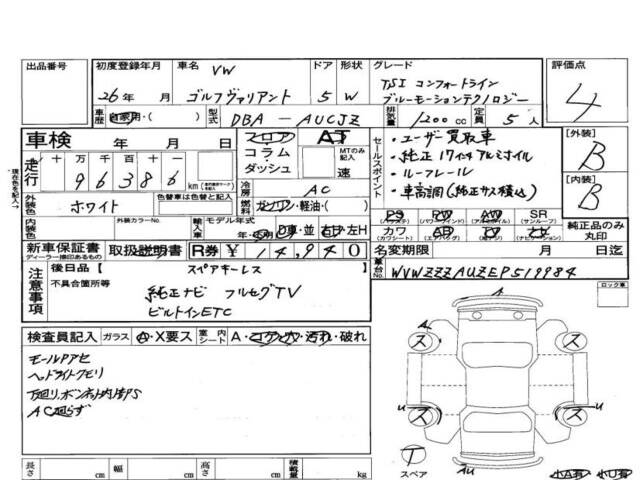 出品番号
初度登録年月
26年 月
車名 VW
ゴルフヴァリアント
ドア 形状
5 W
グレード
TSI コンフォートライン
ブルーモーションテクノロジー
評価点
4
車歴 自家用・( )
型式 DBA - AUCJZ
排気量 1200cc
定員 5人
車検 年 月 日
フロア AT
コラム・
ダッシュ
MTのみ記入
速
セールスポイント
・ユーザー買取車
・純正17インチアルミホイル
・ルーフレール
・車高調(純正サス積込)
[外装]
B
[内装]
B
走行
十 万 千 百 十
9 6 3 8 6 km
冷房 AC
外装色 ホワイト
色替車は色替と記入
燃料 ガソリン・軽油・( )
内装色
外装カラーNo.
輸入車
モデル年式
年
左H
PS PW AW SR
(サンルーフ)
カワ AB TV ナビ
純正品のみ
丸印
新車保証書
取扱説明書
R券 ¥ 14,940
名変期限 月 日迄
車台No. WVWZZZAUZEP519984
注意事項
後日品
不具合箇所等
スペアキーレス
純正ナビ フルセグTV
ビルトインETC
ロック車
検査員記入
ガラス A・X要ス
室内シート A・コゲ穴・汚れ・破れ
モールアセ
ヘッドライトクモリ
下廻り、ボンネット内サPS
AC廻らず
A
ス ス
U ス ス U
T
スペア
AU
小A有 小U有
長さ cm
幅 cm
高さ cm
積載量 kg